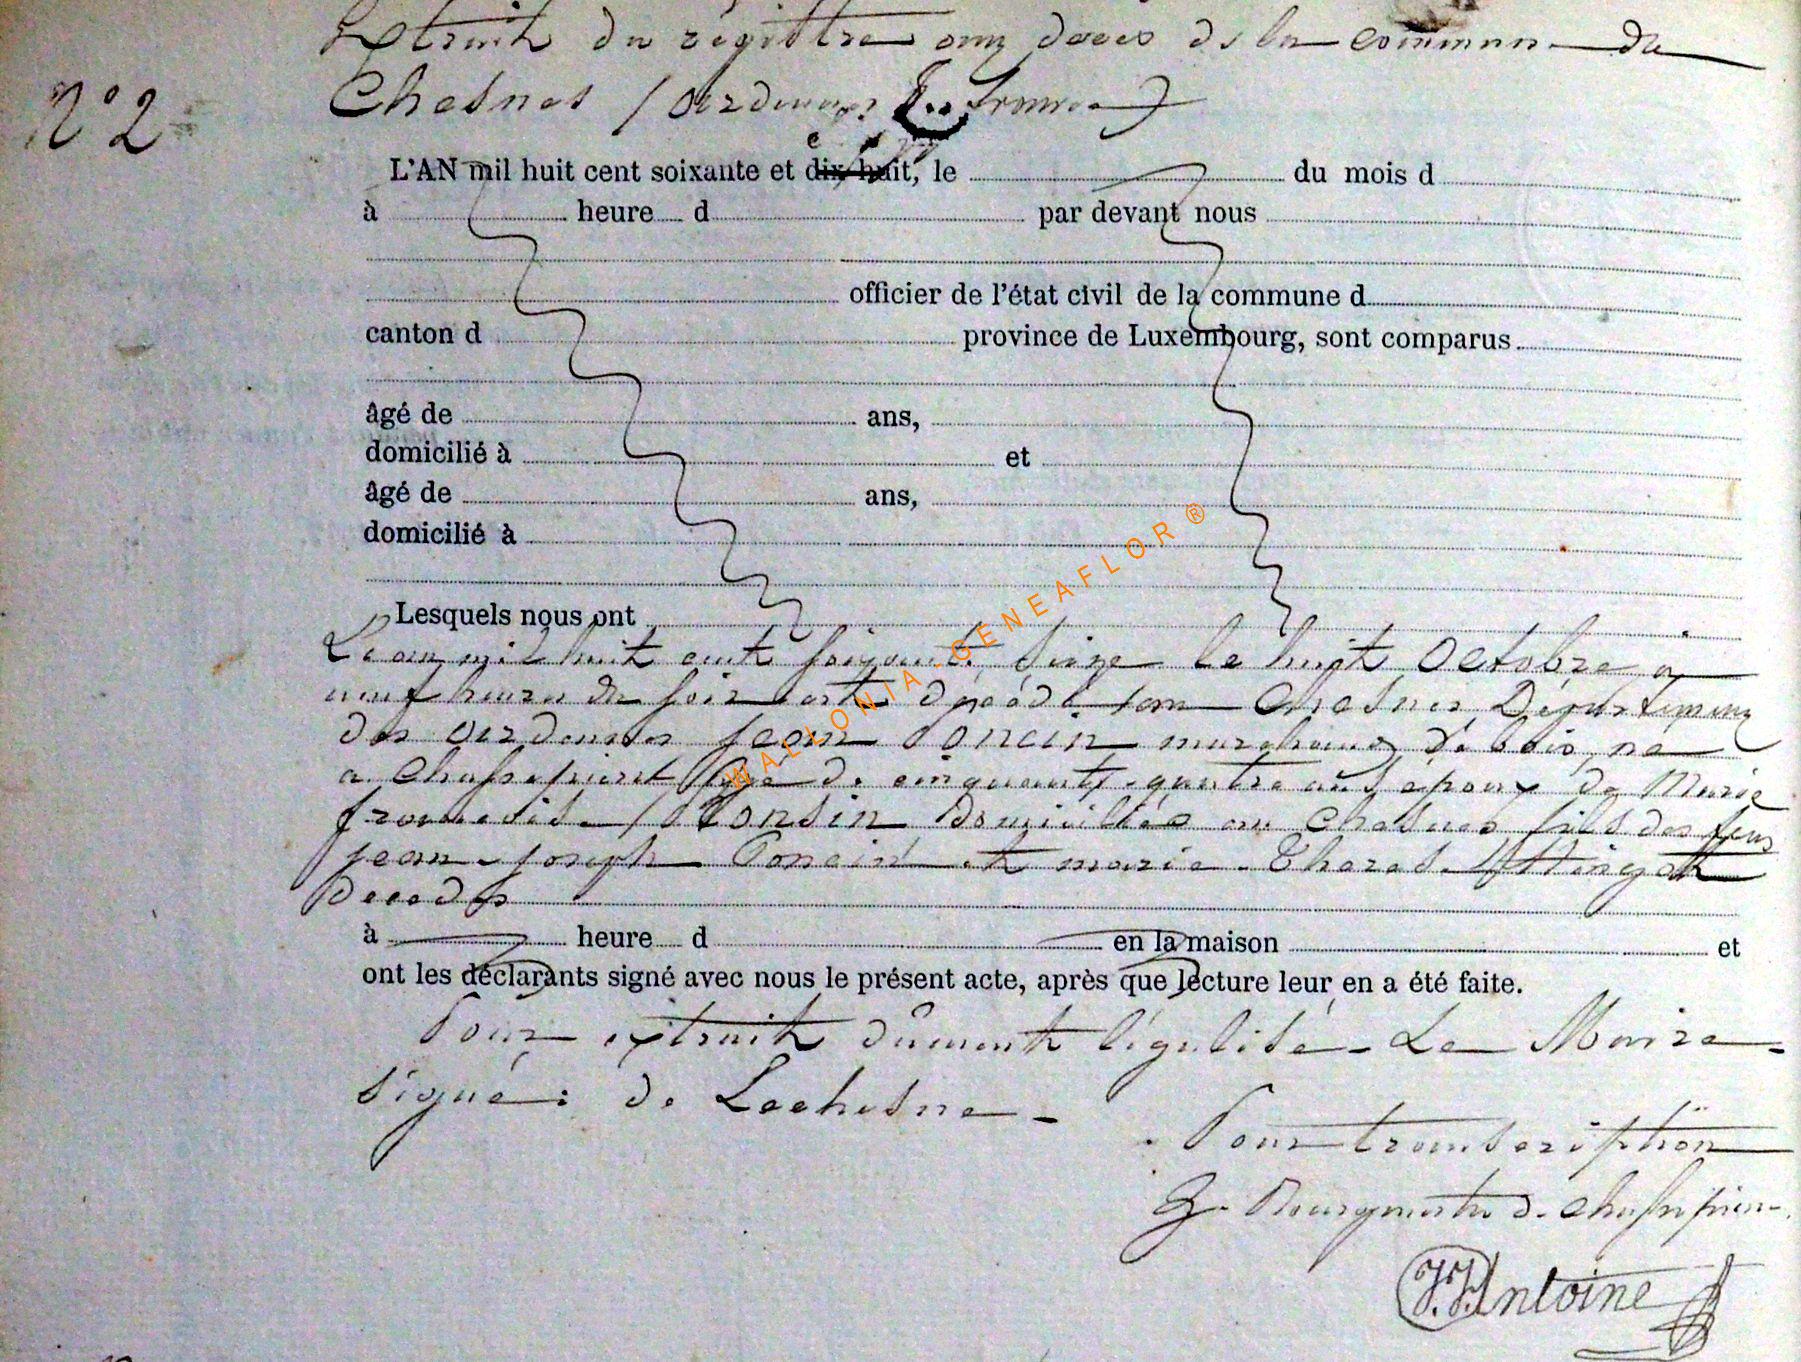 Extrait du registre aux décès de la commune du
N° 2
Chesnes (Ardennes France)
L'AN mil huit cent soixante et dix-huit, le du mois d
à heure d par devant nous
officier de l'état civil de la commune d
canton d province de Luxembourg, sont comparus
âgé de ans,
domicilié à et
âgé de ans,
domicilié à
Lesquels nous ont
L'an mil huit cent soixante seize le huit Octobre à
neuf heures du soir est décédé au Chesnes Département
des Ardennes Jean Poncin marchand de bois, né
a Chassepierre âgé de cinquante-quatre ans époux de Marie
françoise Ponsin domiciliés au Chesnes fils des feus
jean-joseph Poncin et marie-Theres
décédés
à heure d en la maison et
ont les déclarants signé avec nous le présent acte, après que lecture leur en a été faite.
Pour extrait dûment légalisé - Le Maire -
signé: de Lechesne -
Pour transcription
Bourgmestre de Chassepierre
J.J. Antoine
WALLONIA GENEAFLOR ®